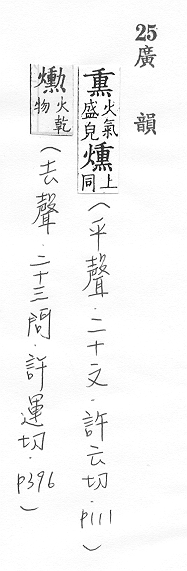 25廣韻
熏火氣盛皃爋上同(平聲.二十文.許云切.p111)
爋火乾物(去聲.二十三問.許運切.p396)